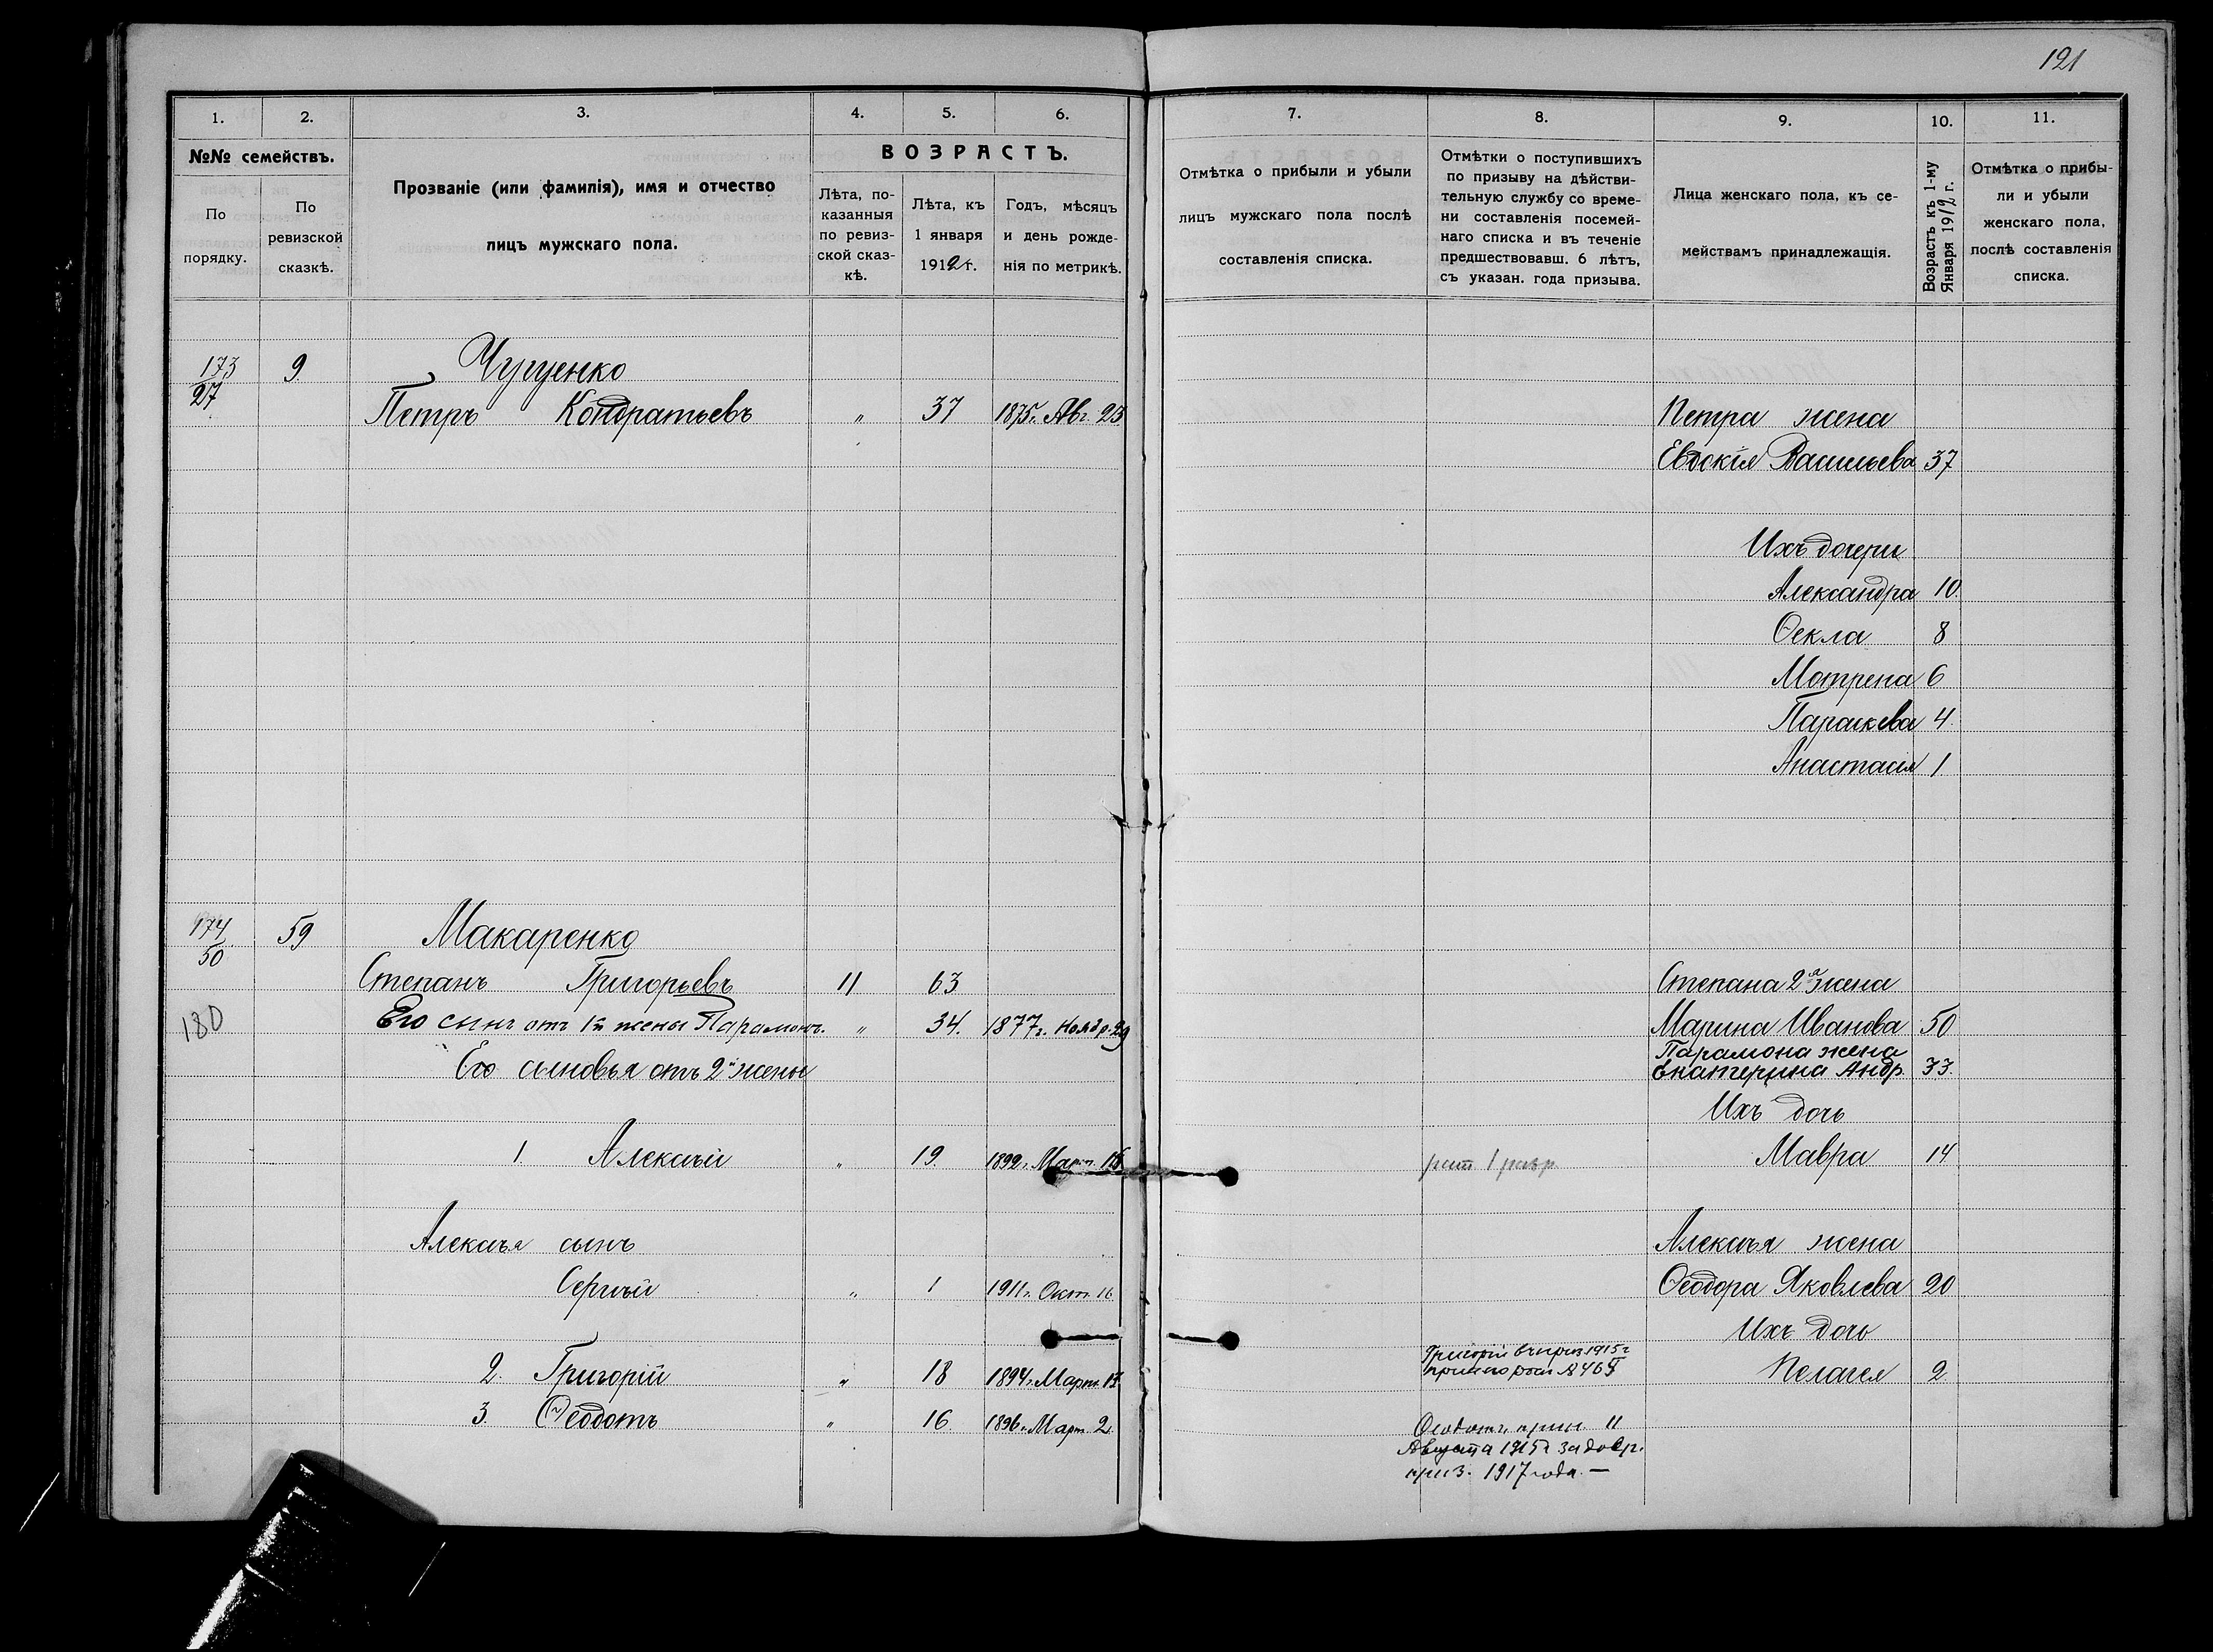 121
1. 2. 3. 4. 5. 6.
№№ семействъ.
По порядку.
По ревизской сказкѣ.
Прозваніе (или фамилія), имя и отчество
лицъ мужскаго пола.
ВОЗРАСТЪ.
Лѣта, по-
казанныя
по ревиз-
ской сказ-
кѣ.
Лѣта, къ
1 января
1912 г.
Годъ, мѣсяцъ
и день рожде-
нія по метрикѣ.
7. 8. 9. 10. 11.
Отмѣтка о прибыли и убыли
лицъ мужскаго пола послѣ
составленія списка.
Отмѣтки о поступившихъ
по призыву на дѣйстви-
тельную службу со време-
ни составленія посемей-
наго списка и въ теченіе
предшествовавш. 6 лѣтъ,
съ указан. года призыва.
Лица женскаго пола, къ се-
мействамъ принадлежащія.
Возрастъ къ 1-му
Января 1912 г.
Отмѣтка о прибы-
ли и убыли
женскаго пола,
послѣ составленія
списка.
173 9 Чугуенко
27
Петръ Кондратьевъ " 37 1875 г. Авг. 23 Петра жена
Евдокія Васильева 37
Ихъ дочери
Александра 10
Ѳекла 8
Мотрена 6
Параскева 4
Анастасія 1
174 59 Макаренко
50
Степанъ Григорьевъ 11 63 Степана 2я жена
180 Его сынъ отъ 1й жены Парамонъ. " 34. 1877 г. Ноябр. 29 Марина Иванова 50
Его сыновья отъ 2й жены Парамона жена
Екатерина Андр. 33.
Ихъ дочь
1. Алексѣй " 19. 1892 г. Март. 16 рат 1 разр Мавра 14
Алексѣя сынъ Алексѣя жена
Сергѣй " 1 1911 г. Окт. 16 Ѳеодора Яковлева 20
Ихъ дочь
2. Григорій " 18 1894 г. Март. 17 Григорій въ приз 1915 г Пелагея 2
3. Ѳеодотъ " 16 1896 г. Март 2 Ѳеодотъ прин. 11
Августа 1915 г за доср.
приз. 1917 года. —